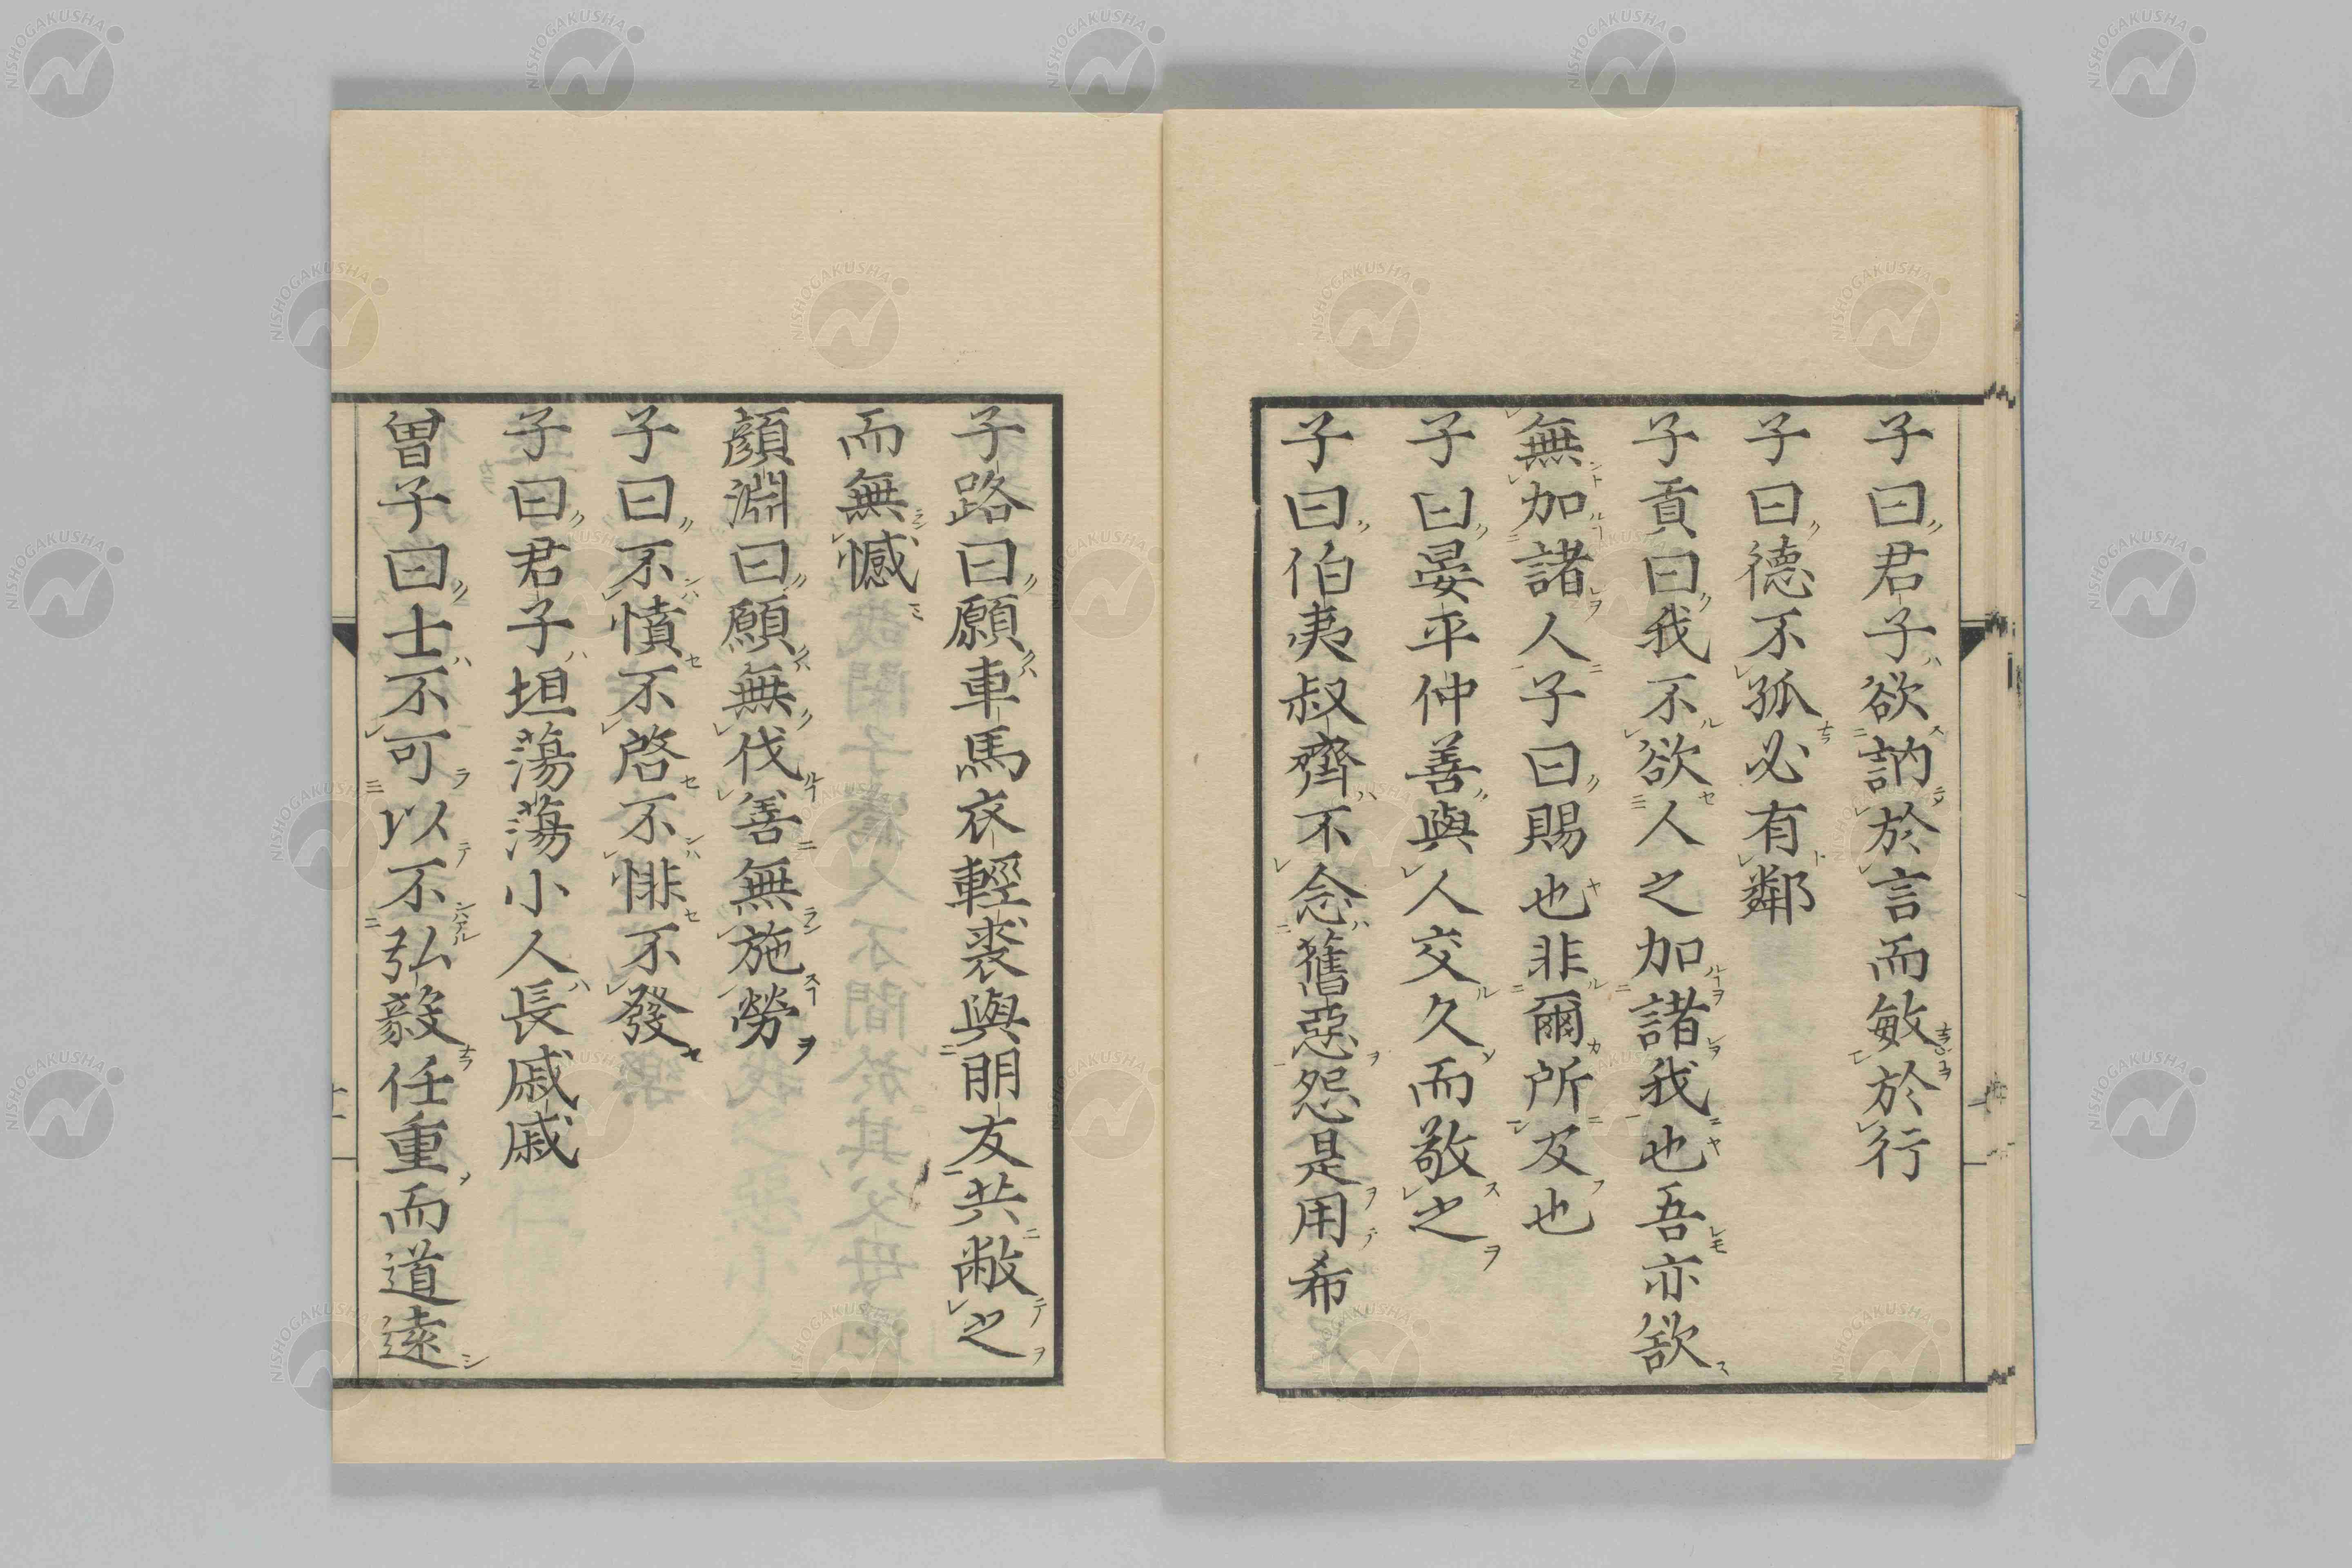 子曰君子欲訥於言而敏於行
子曰德不孤必有鄰
子貢曰我不欲人之加諸我也吾亦欲
無加諸人子曰賜也非爾所及也
子曰晏平仲善與人交久而敬之
子曰伯夷叔齊不念舊惡怨是用希
子路曰願車馬衣輕裘與朋友共敝之
而無憾
顏淵曰願無伐善無施勞
子曰不憤不啓不悱不發
子曰君子坦蕩蕩小人長戚戚
曽子曰士不可以不弘毅任重而道遠
NISHOGAKUSHA